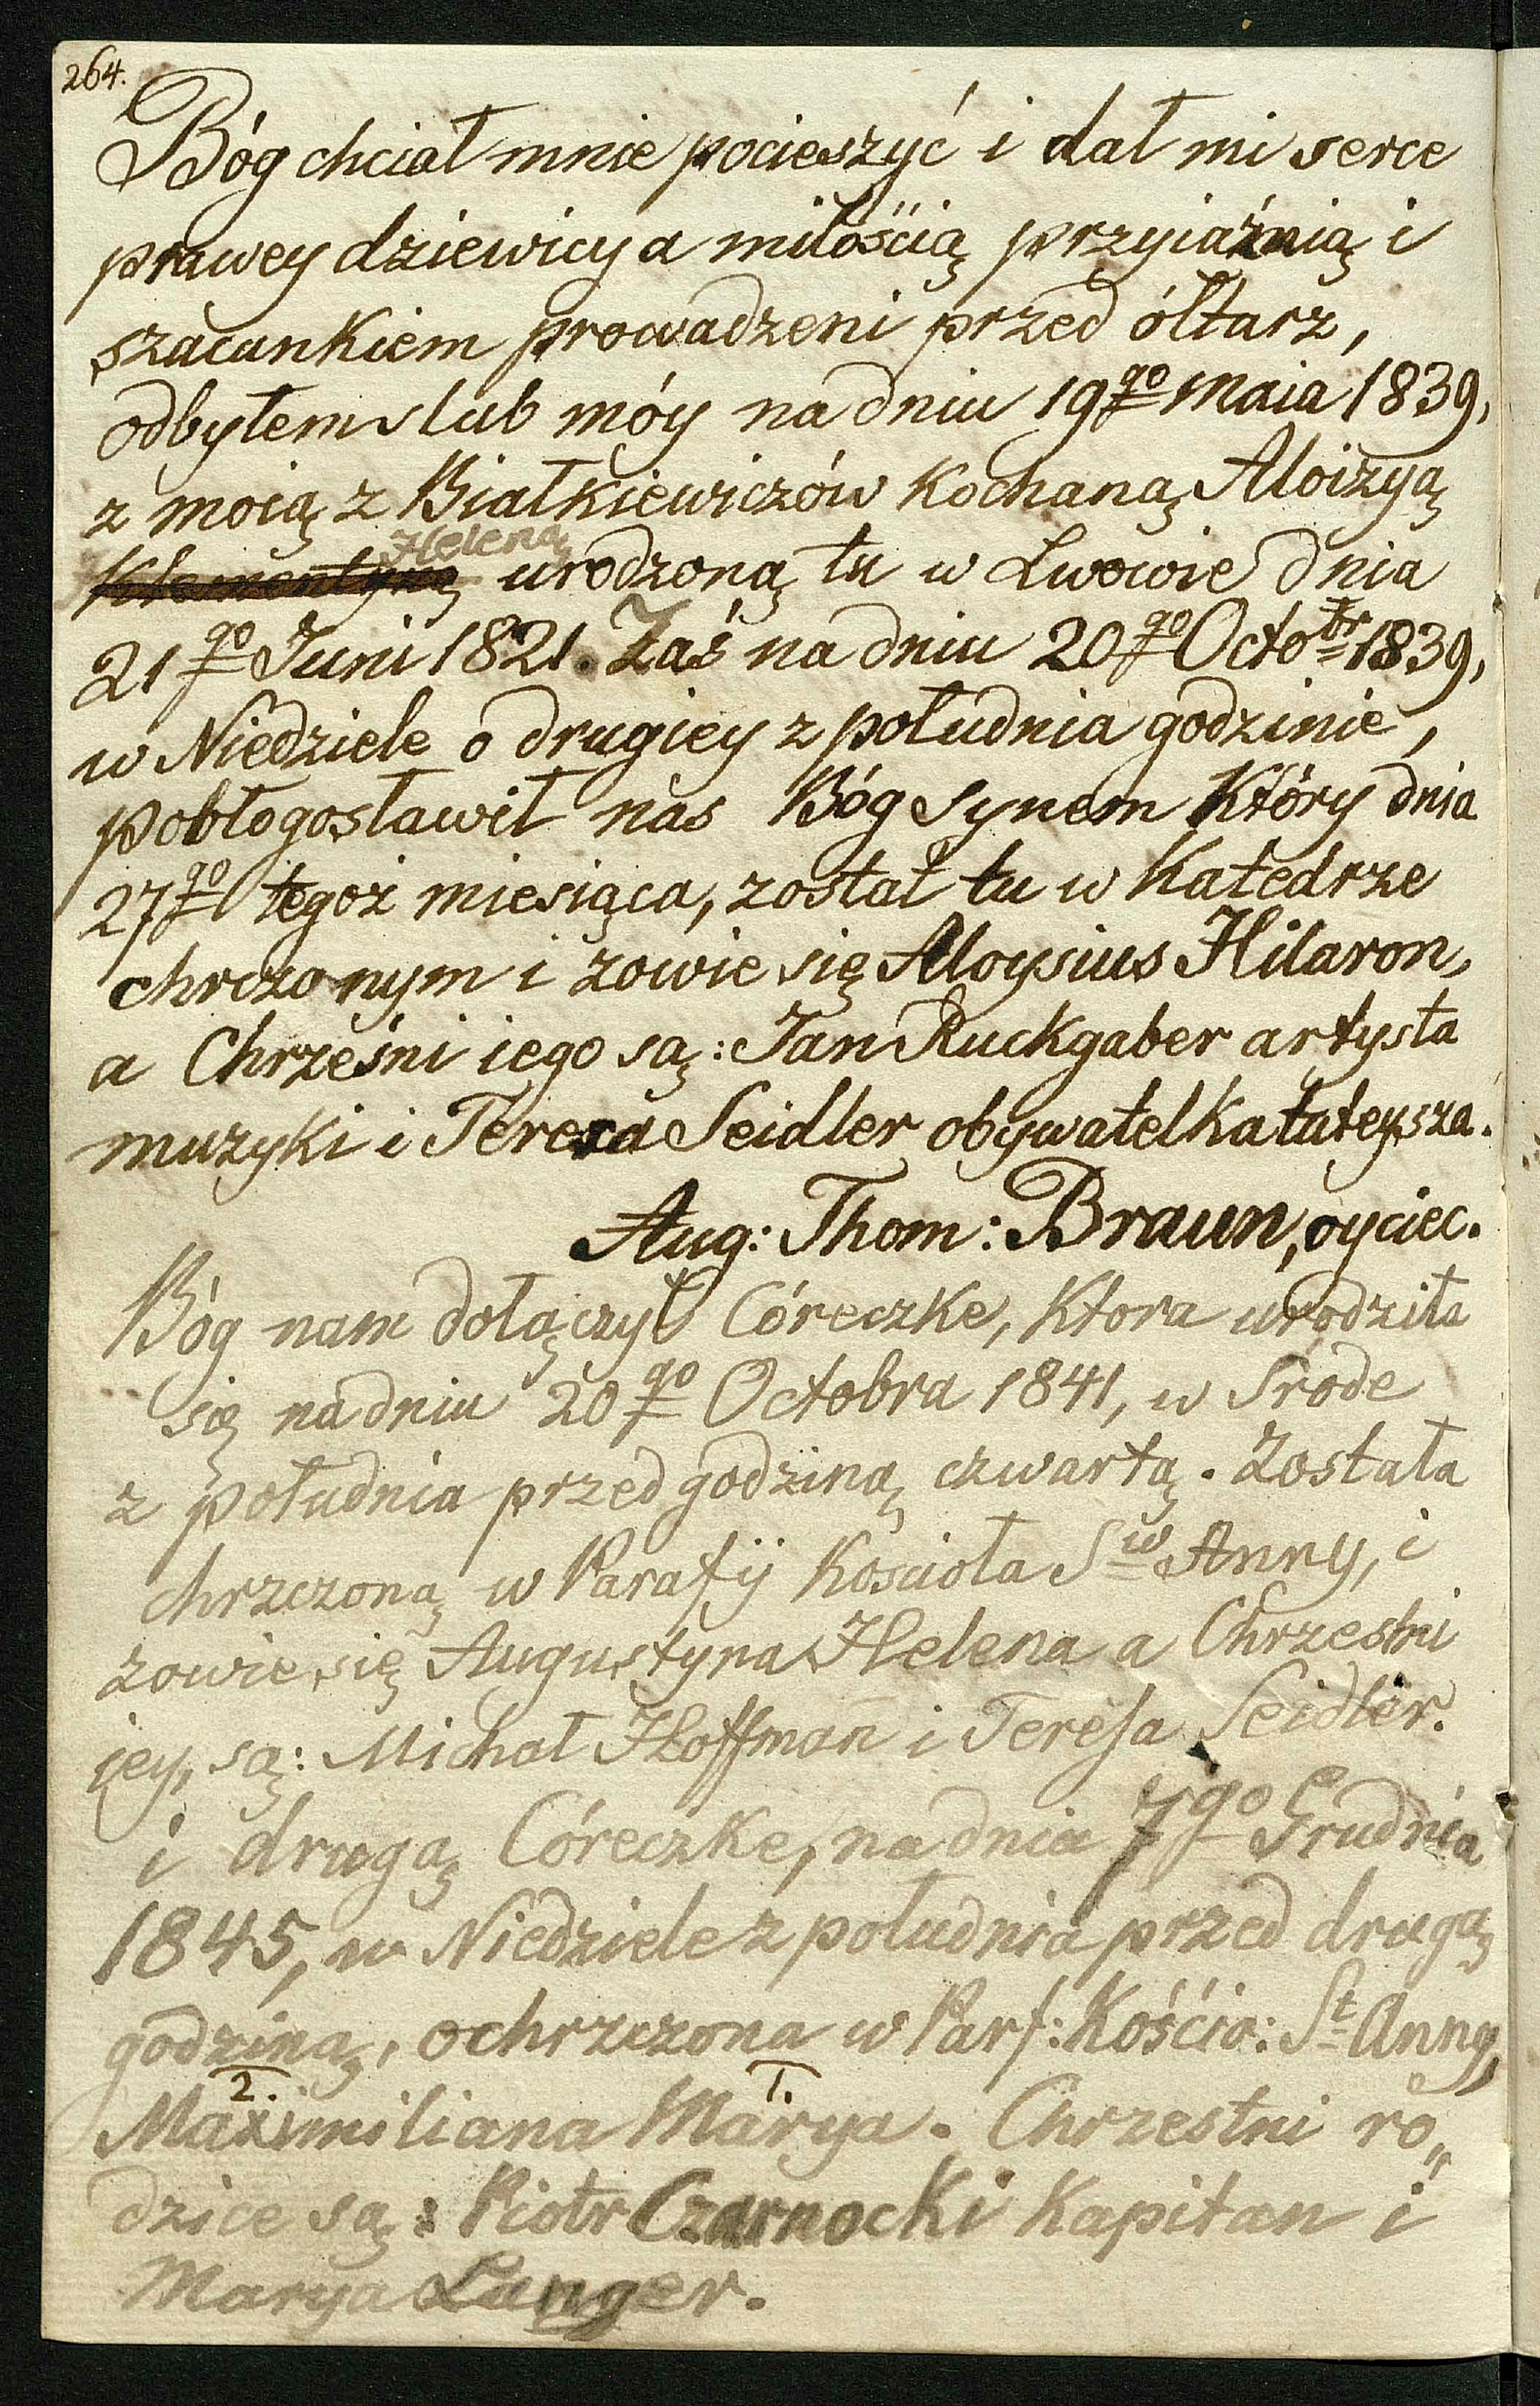 264.
Bóg chciał mnie pocieszyć i dał mi serce
prawey dziewicy a miłością przyiaźnią i
szacunkiem prowadzeni przed ółtarz,
odbyłem slub móy na dniu 19go Maia 1839,
z moią z Białkiewiczów Kochaną Aloizyą
Helena
Klementyną urodzoną tu w Lwowie dnia
21go Juni 1821. Zaś na dniu 20go Octobr 1839,
w Niedziele o drugiey z południa godzinie,
pobłogosławił nas Bóg synem Który dnia
27go tegoż miesiąca, został tu w Katedrze
chrczonym i zowie się Aloysius Hilaron,
a Chrześni iego są: Jan Ruckgaber artysta
muzyki i Teresa Seidler obywatelka tuteysza.
Aug: Thom: Braun, oyciec.
Bóg nam dołączył Córeczke, Ktora urodziła
się na dniu 20go Octobra 1841, w Srode
z południa przed godziną czwartą. Została
chrzczoną w Parafij Kościoła Sw Anny, i
zowie się Augustyna Helena a Chrzestni
iey, są: Michał Hoffman i Teresa Seidler.
i drugą Córeczke, na dnia 7go Grudnia
1845, w Niedziele z południa przed drugą
godziną, ochrzczona w Parf: Kośćio: St Anny,
2. 1.
Maximiliana Marya. Chrzestni ro„
dzice są: Piotr Czarnocki Kapitan i
Marya Langer.